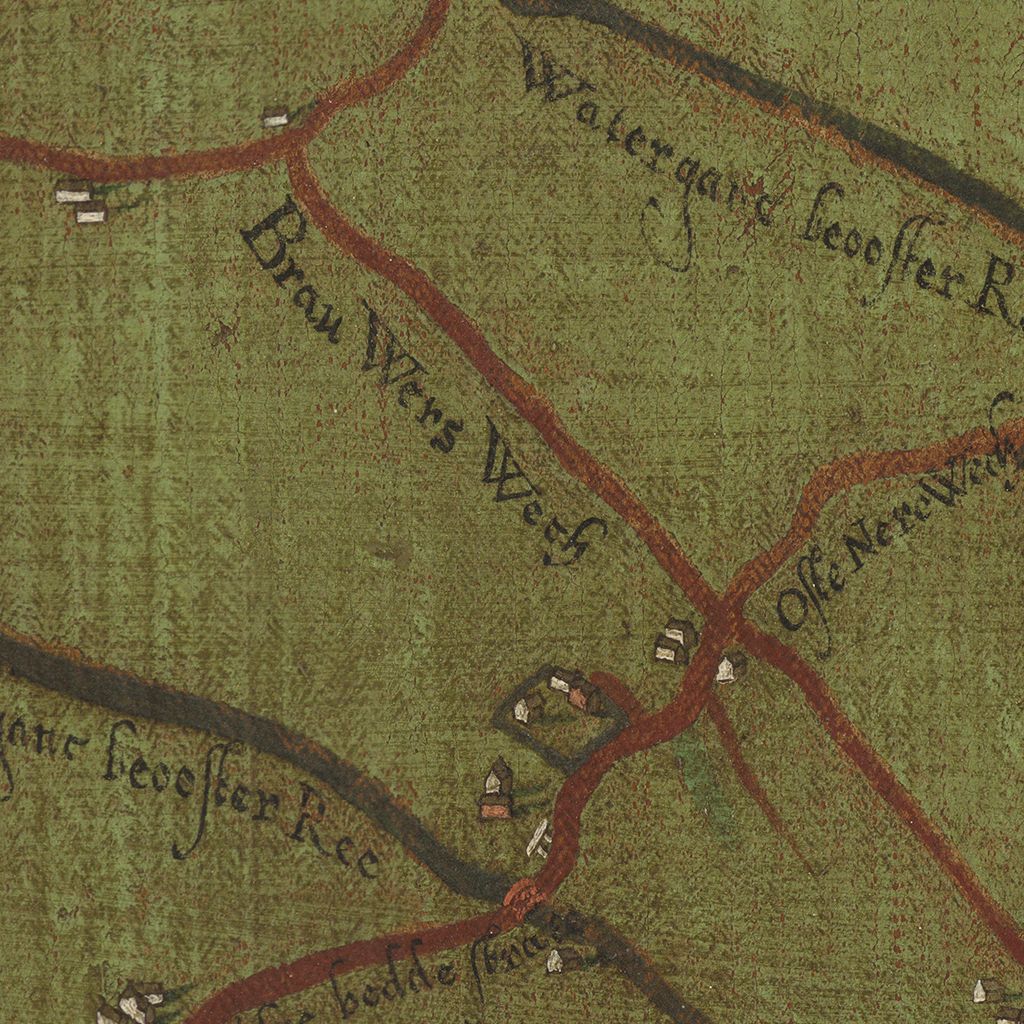 Watergane beooster R
Brau Wers Wech
Oste Nere Wech
gane beooster Ree
bedde strate